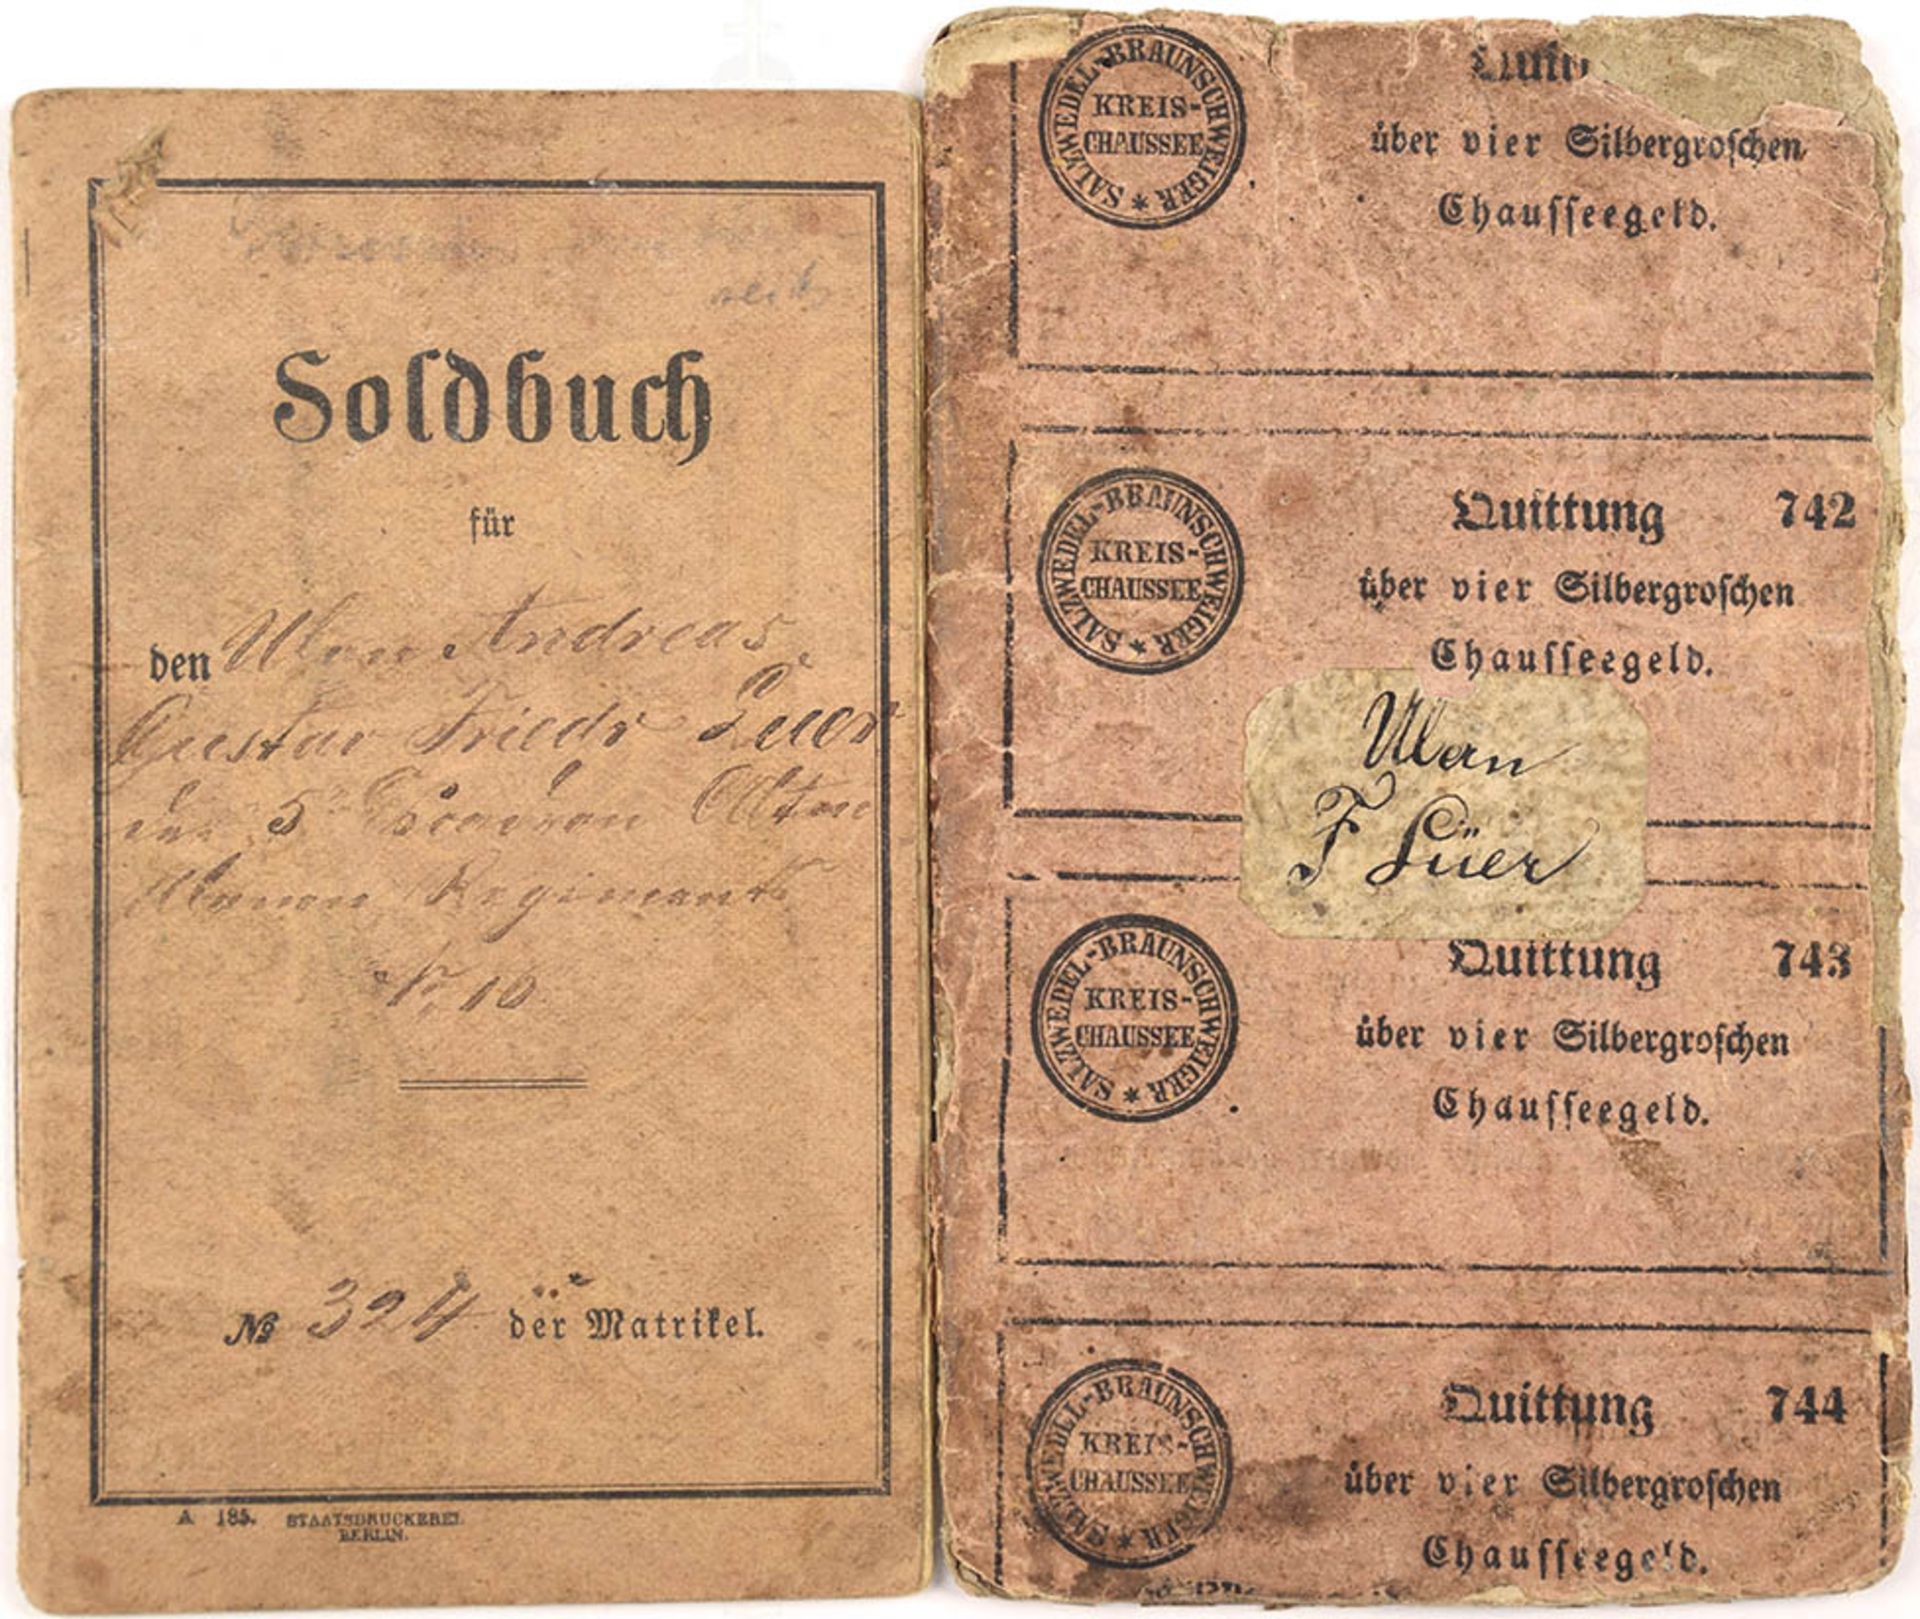 Soldbuch
für
den Ulan Andreas
Gustav Friedr Lüer
der 5. Escadron Altm
Ulanen Regiments
Nr. 16
№ 324 der Matrikel.
A 185. STAATSDRUCKEREI
BERLIN.
SALZWEDEL-BRAUNSCHWEIGER
KREIS-
CHAUSSEE
über vier Silbergroschen
Chausseegeld.
SALZWEDEL-BRAUNSCHWEIGER
KREIS-
CHAUSSEE
Quittung 742
über vier Silbergroschen
Chausseegeld.
Ulan
F Lüer
SALZWEDEL-BRAUNSCHWEIGER
KREIS-
CHAUSSEE
Quittung 743
über vier Silbergroschen
Chausseegeld.
SALZWEDEL-BRAUNSCHWEIGER
KREIS-
CHAUSSEE
Quittung 744
über vier Silbergroschen
Chausseegeld.